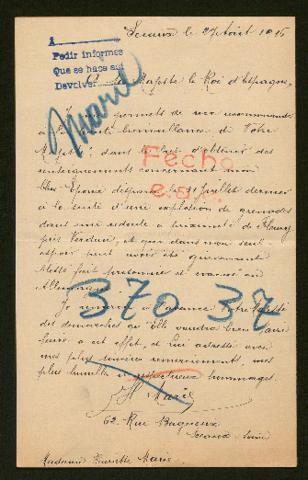 Sceaux le 27 Août 1916
A
Pedir informes
Que se hace así
Devolver
Marie
Sa Majesté le Roi d'Espagne,
Je me permets de me recommander
à la bienveillance de Votre
Majesté dans le but d'obtenir des
renseignements concernant mon
Epoux disparu le 31 juillet dernier
à la suite d'une explosion de grenades
dans une redoute à proximité de Fleury
près Verdun, et que dans mon seul
espoir peut avoir été gravement
blessé fait prisonnier et évacué en
Allemagne.
Fecho
37037
Je remercie d'avance Votre Majesté
des démarches qu'Elle voudra bien faire
faire à cet effet, et lui adresse avec
mes plus sincères remerciements, mes
plus humbles et respectueux hommages.
Marie
62 Rue Bagneux
Sceaux Seine
Madame Marie.